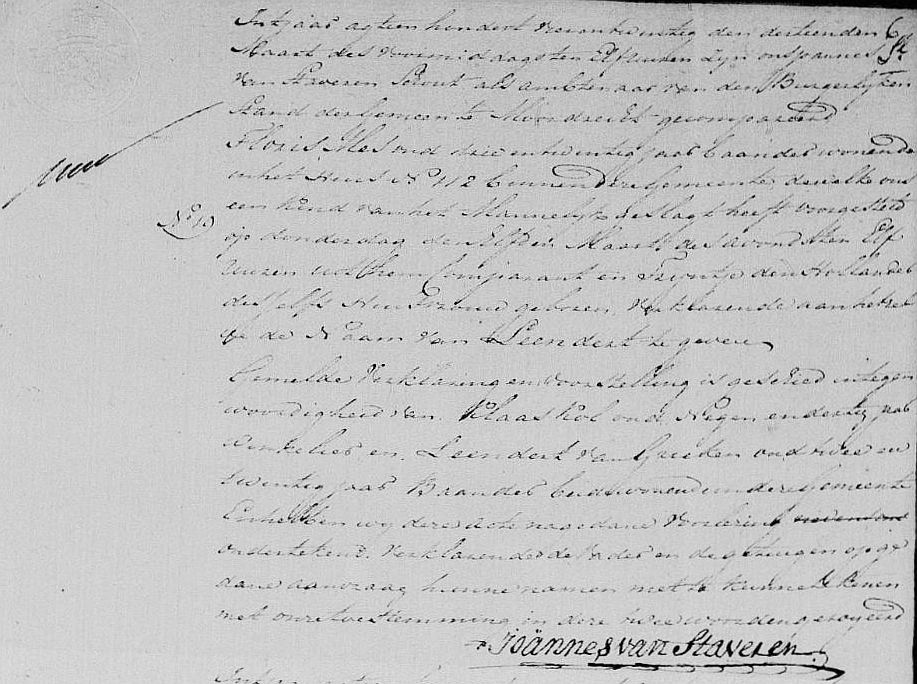 In t jaar agtien hondert vierentwintig den dertienden 6
Maart des voormiddags ten Elf uuren zyn ons Joannes
van Staveren Schout als ambtenaar van den Burgerlyken
Stand der Gemeente Moordrecht gecompareerd
Floris Mes oud drie entwintig jaar baander wonende
in het Huis N 112 binnen dese Gemeente, dewelke ons
No 13
een kind van het Mannelyk geslagt heeft voorgesteld
op donderdag den Elfden Maart des avonds ten Elf
Uuren uit hem Comparant en Fijntje den Hollander
deszelfs Huisvrouw geboren, verklarende aan hetzel
ve de Naam van Leendert te geven
Gemelde Verklaring en voorstelling is geschied in tegen
woordigheid van Klaas Kol oud Negen en dertig jaar
winkelier en Leendert van oud twee en
twintig jaar Baander beide wonende in deze Gemeente
En hebben wy deze acte na gedane Voorlezing
ondertekend. Verklarende de Vader en de getuigen op ge
dane aanvraag hunne namen niet te kunnen tekenen
met onze toestemming in deze twee woorden geroyeerd
Joännes van Staveren